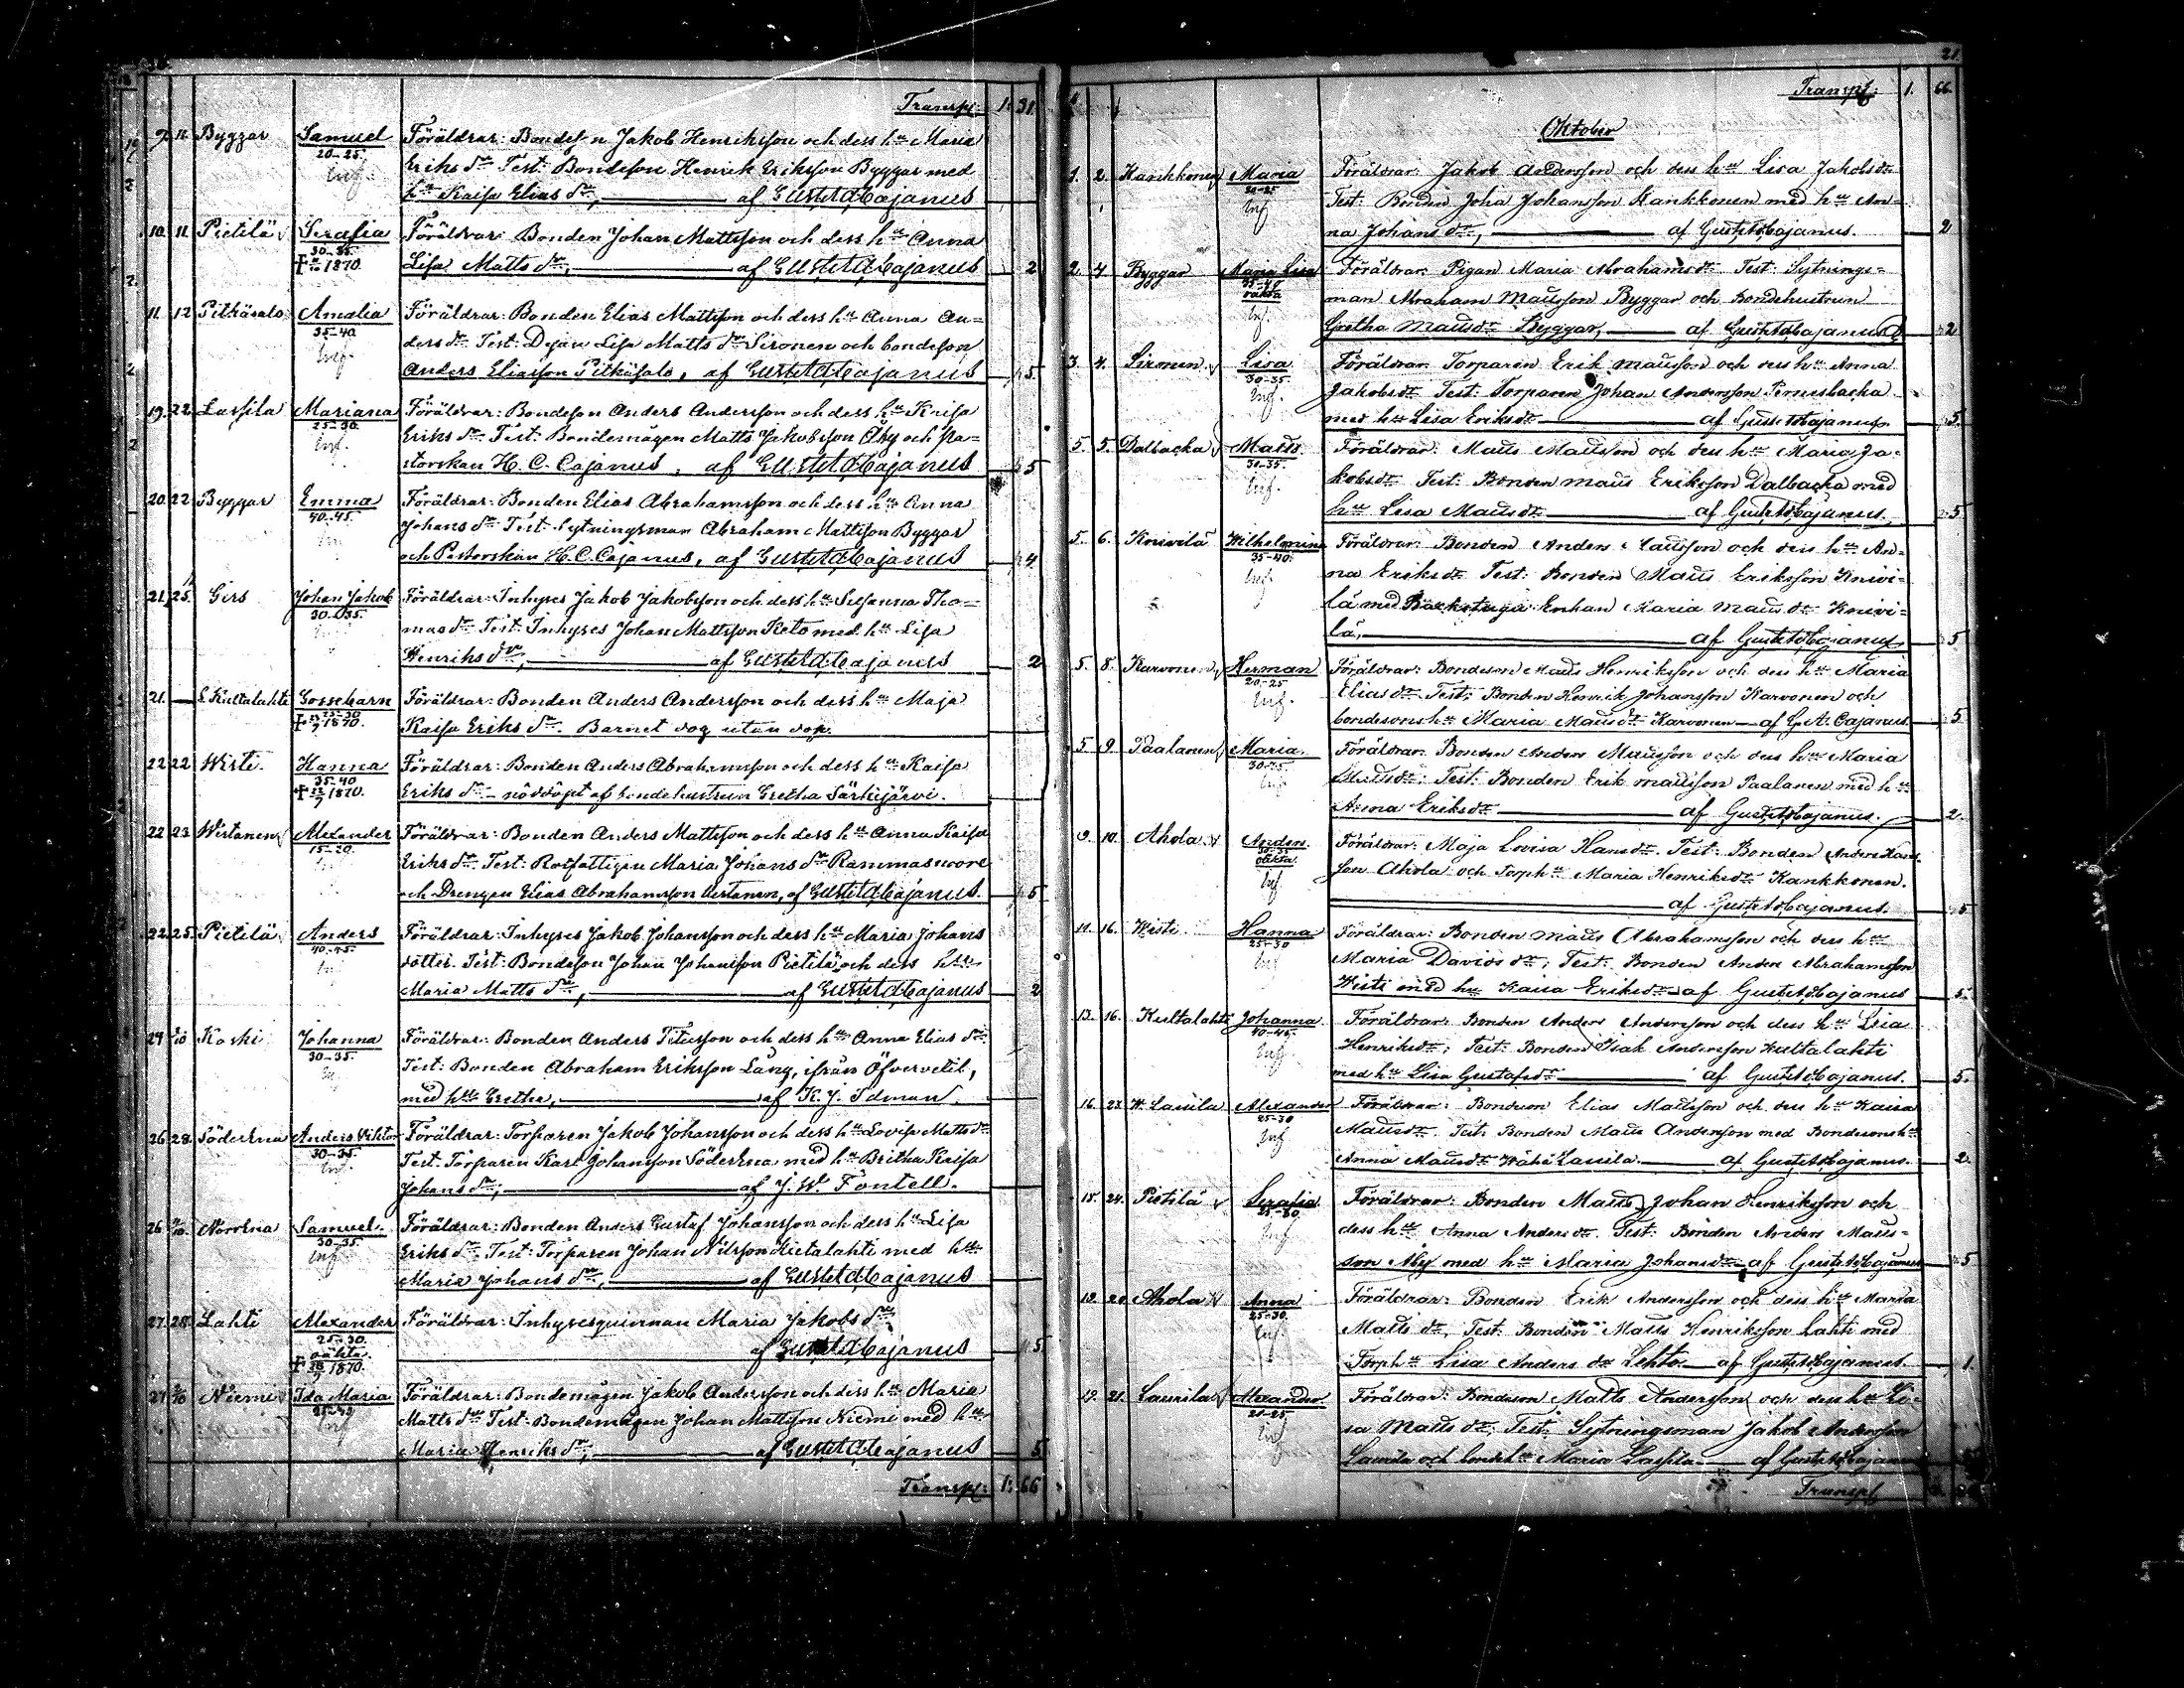 Transp: 1. 31.
9. 11. Byggar Samuel Föräldrar: Bondeson Jakob Henriksson och dess hu Maria
20-25. Eriks dr Test: Bondeson Henrik Eriksson Byggar med
Inf. hu Kaisa Elias dr, af Gust. Ad. Cajanus
10. 11. Pietilä Serafia Föräldrar: Bonden Johan Mattsson och dess hu Anna
30-35. Lisa Matts dr, af Gust. Ad. Cajanus 2
1870.
11. 12. Pitkäsalo Amalia Föräldrar: Bonden Elias Mattsson och dess hu Anna An=
35-40. ders dr Test: Dejan Lisa Matts dr Sironen och bondeson
Inf. Anders Eliasson Pitkäsalo, af Gust. Ad. Cajanus 5
19. 22. Lassila Mariana Föräldrar: Bondeson Anders Andersson och dess hu Kaisa
25-30. Eriks dr Test: Bondemågen Matts Jakobsson Åby och pa=
Inf. storskan H. C. Cajanus, af Gust. Ad. Cajanus 5
20. 22. Byggar Emma Föräldrar: Bonden Elias Abrahamsson och dess hu Anna
40-45. Johans dr Test: Sytningsman Abraham Mattsson Byggar
Inf. och Pastorskan H. C. Cajanus, af Gust. Ad. Cajanus 4
21. 25. Girs Johan Jakob Föräldrar: Inhyses Jakob Jakobsson och dess hu Susanna Tho=
30-35. mas dr Test: Inhyses Johan Mattsson Keto med hu Lisa
Henriks dr, af Gust. Ad. Cajanus 2
21. — Kultalahti Gossebarn Föräldrar: Bonden Anders Andersson och dess hu Maja
25-30 1870. Kaisa Eriks dr. Barnet dog utan dop.
22. 22. Wirti. Hanna Föräldrar: Bonden Anders Abrahamsson och dess hu Kaisa
35-40 1870. Eriks dr – nöddöpt af bondehustrun Gretha Särkijärvi.
22. 23. Wirtanen Alexander Föräldrar: Bonden Anders Mattsson och dess hu Anna Kaisa
15-20. Eriks dr Test: Rotfattigen Maria Johans dr Rammaswore
och Drengen Elias Abrahamsson Wertanen, af Gust. Ad. Cajanus. 5
22. 25. Pietilä Anders Föräldrar: Inhyses Jakob Johansson och dess hu Maria Johans
40-45. dotter. Test: Bondeson Johan Johansson Pietilä och dess hu
Maria Matts dr, af Gust. Ad. Cajanus 2
24. Koski Johanna Föräldrar: Bonden Anders Titusson och dess hu Anna Elias dr
30-35. Test: Bonden Abraham Eriksson Lång, ifrån Öfvervetil,
med hu Gretha, af K. J. Idman.
26. 28. Söderkna Anders Viktor Föräldrar: Torparen Jakob Johansson och dess hu Lovisa Matts dr
30-35. Test: Torparen Karl Johansson Söderkna med hu Britha Kaisa
Johans dr, af J. W. Fontell.
26. Norrkna Samuel. Föräldrar: Bonden Anders Gustaf Johansson och dess hu Lisa
30-35. Eriks dr Test: Torparen Johan Nilsson Kietalahti med hu
Inf. Maria Johans dr, af Gust. Ad. Cajanus
27. 28. Lahti Alexander Föräldrar: Inhysesqvinnan Maria Jakobs dr
25-30. oäkta af Gust. Ad. Cajanus 5
1870.
27. Niemi Ida Maria Föräldrar: Bondemågen Jakob Andersson och dess hu Maria
Matts dr Test: Bondemågen Johan Mattsson Niemi med hu
Inf Maria Henriks dr, af Gust. Ad. Cajanus 5
Transp: 1. 66
21.
Transp: 1. 66.
Oktober
1. 2. Kankkonen Maria Föräldrar: Jakob Andersson och dess hu Lisa Jakobs dr
20-25 Test: Bonden Joha Johansson Kankkonen med hu An=
Inf. na Johans dr, af Gust. Ad. Cajanus. 2
2. 4. Byggar Maria Lisa Föräldrar: Pigan Maria Abrahams dr Test: Sytnings=
35-40 oäkta man Abraham Mattsson Byggar och Bondehustrun
Inf. Gretha Matts dr Byggar, af Gust. Ad. Cajanus 2
3. 4. Sironen Lisa Föräldrar: Torparen Erik Mattsson och dess hu Anna
30-35. Jakobs dr Test: Torparen Johan Andersson Pernesbacka
Inf. med hu Lisa Eriks dr af Gust. Ad. Cajanus. 5.
5. 5. Dalbacka Matts. Föräldrar: Matts Mattsson och dess hu Maria Ja=
30-35. kobs dr Test: Bonden Matts Eriksson Dalbacka med
Inf. hu Lisa Matts dr af Gust. Ad. Cajanus. 5
5. 6. Knivilä Wilhelmina Föräldrar: Bonden Anders Mattsson och dess hu An=
35-40. na Eriks dr Test: Bonden Matts Eriksson Knivi=
Inf lä med Backstugu Enkan Maria Matts dr Knivi=
lä, af Gust. Ad. Cajanus 5
5. 8. Karvonen Herman Föräldrar: Bondeson Matts Henriksson och dess hu Maria
20-25 Elias dr Test: Bonden Henrik Johansson Karvonen och
Inf. bondesons hu Maria Matts dr Karvonen — af G. A. Cajanus. 5
5. 9. Paalanen Maria. Föräldrar: Bonden Anders Mattsson och dess hu Maria
Test: Bonden Erik Mattsson Paalanen med hu
Inf Anna Eriks dr af Gust. Ad. Cajanus. 2.
9. 10. Ahola Anders. Föräldrar: Maja Lovisa Hans dr. Test: Bonden Anders Hans
oäkta son Ahola och Torp hu Maria Henriks dr Kankkonen.
Inf af Gust. Ad. Cajanus. 5
11. 16. Wisti. Hanna Föräldrar: Bonden Matts Abrahamsson och dess hu
25-30 Maria Davids dr, Test: Bonden Anders Abrahamsson
Inf Wisti med hu Kaisa Eriks dr af Gust. Ad. Cajanus 5.
13. 16. Kultalahti Johanna. Föräldrar: Bonden Anders Andersson och dess hu Lisa
40-45. Henriks dr, Test: Bonden Isak Andersson Kultalahti
Inf. med hu Lisa Gustafs dr af Gust. Ad. Cajanus. 5.
16. 23. W. Laurila Alexander Föräldrar: Bondeson Elias Mattsson och dess hu Kaisa
25-30 Matts dr. Test: Bonden Matts Andersson med Bondesons hu
Inf Anna Matts dr Wähä Laurila. af Gust. Ad. Cajanus. 2.
18. 24. Pietilä Serafia Föräldrar: Bonden Matts Johan Henriksson och
25-30. dess hu Anna Anders dr. Test: Bonden Anders Matts=
Inf son Åby med hu Maria Johans dr af Gust. Ad. Cajanus 5
19. 20. Ahola Anna Föräldrar: Bondeson Erik Andersson och dess hu Maria
25-30. Matts dr, Test: Bonden Matts Henriksson Lahti med
Inf. Torp hu Lisa Anders dr Lehto. af Gust. Ad. Cajanus. 1.
19. 21. Laurila Alexander Föräldrar: Bondeson Matts Andersson och dess hu Li=
20-25. sa Matts dr, Test: Sytningsman Jakob Andersson
Inf Laurila och bonde hu Maria Lassila. af Gust. Ad. Cajanus
Transp